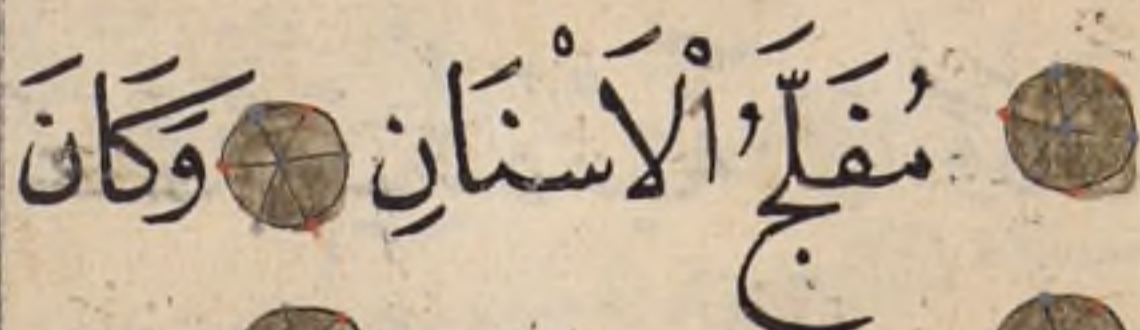 مُفَلَّجُ الْاَسْنَانِ وَكَانَ